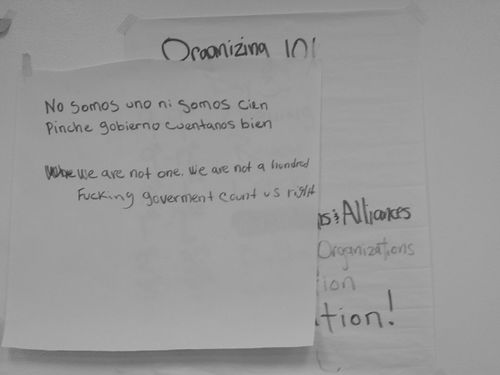 Organizing 101
No somos uno ni somos cien
Pinche gobierno cuentanos bien
We are not one. We are not a hundred
Fucking goverment count us right
Alliances
Organizations